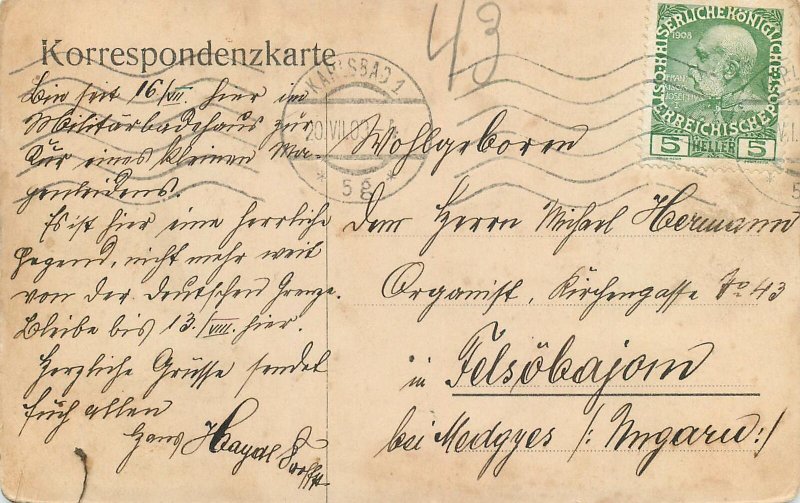 43
Korrespondenzkarte
Bin seit 16/VII. hier im
Militärbadehaus zur
Kur eines kleinen Ma-
genleidens.
Es ist hier eine herrliche
Gegend, nicht mehr weit
von der deutschen Grenze.
Bleibe bis 13./VIII. hier.
Herzliche Grüsse sendet
Euch allen
Hans
KARLSBAD 1
20.VII.09
* 5g *
KAISERLICHE KÖNIGLICHE ÖSTERREICHISCHE POST
1908
5 HELLER 5
Wohlgeboren
dem Herrn Michael Hermann
Organist, Kirchengasse No 43
in Felsöbajom
bei Medgyes /: Ungarn :/